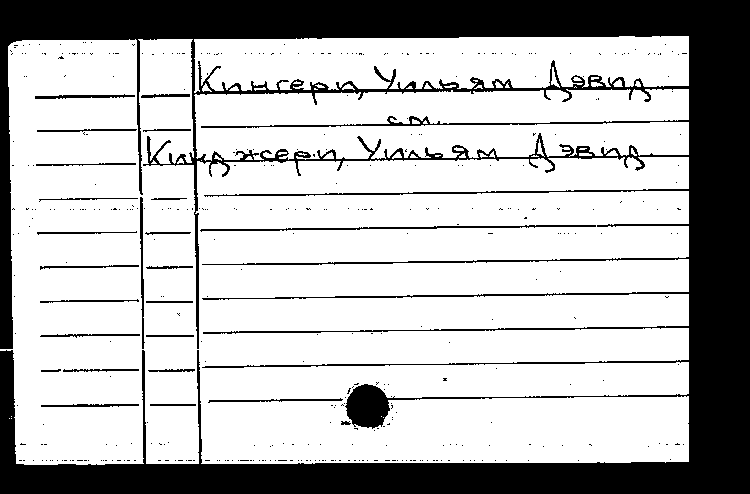 Кингери, Уильям Дэвид
см.
Кинджери, Уильям Дэвид.